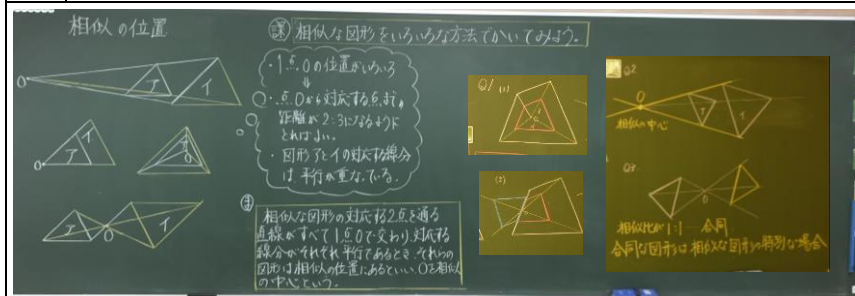 相似の位置
O
ア
イ
O
ア
イ
O
ア
O
イ
課 相似な図形をいろいろな方法でかいてみよう。
・1点Oの位置がいろいろ
⇓
・点Oから対応する点まで、
距離が2:3になるように
とればよい。
・図形アとイの対応する線分
は平行か重なっている。
ま
相似な図形の対応する2点を通る
直線がすべて1点Oで交わり、対応する
線分がそれぞれ平行であるとき、それらの
図形は相似の位置にあるといい、Oを相似
の中心という。
Q1 (1)
(2)
Q2
O
相似の中心
Q3
O
相似比が1:1…合同
合同な図形は相似な図形の特別な場合